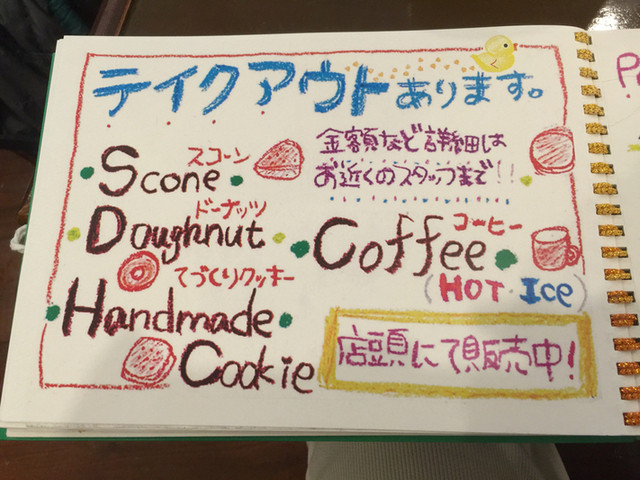 テイクアウトあります。
金額など詳細は
お近くのスタッフまで!!
スコーン
Scone
ドーナッツ
Doughnut
コーヒー
Coffee
(HOT・ICE)
てづくりクッキー
Handmade
Cookie
店頭にて販売中!
P